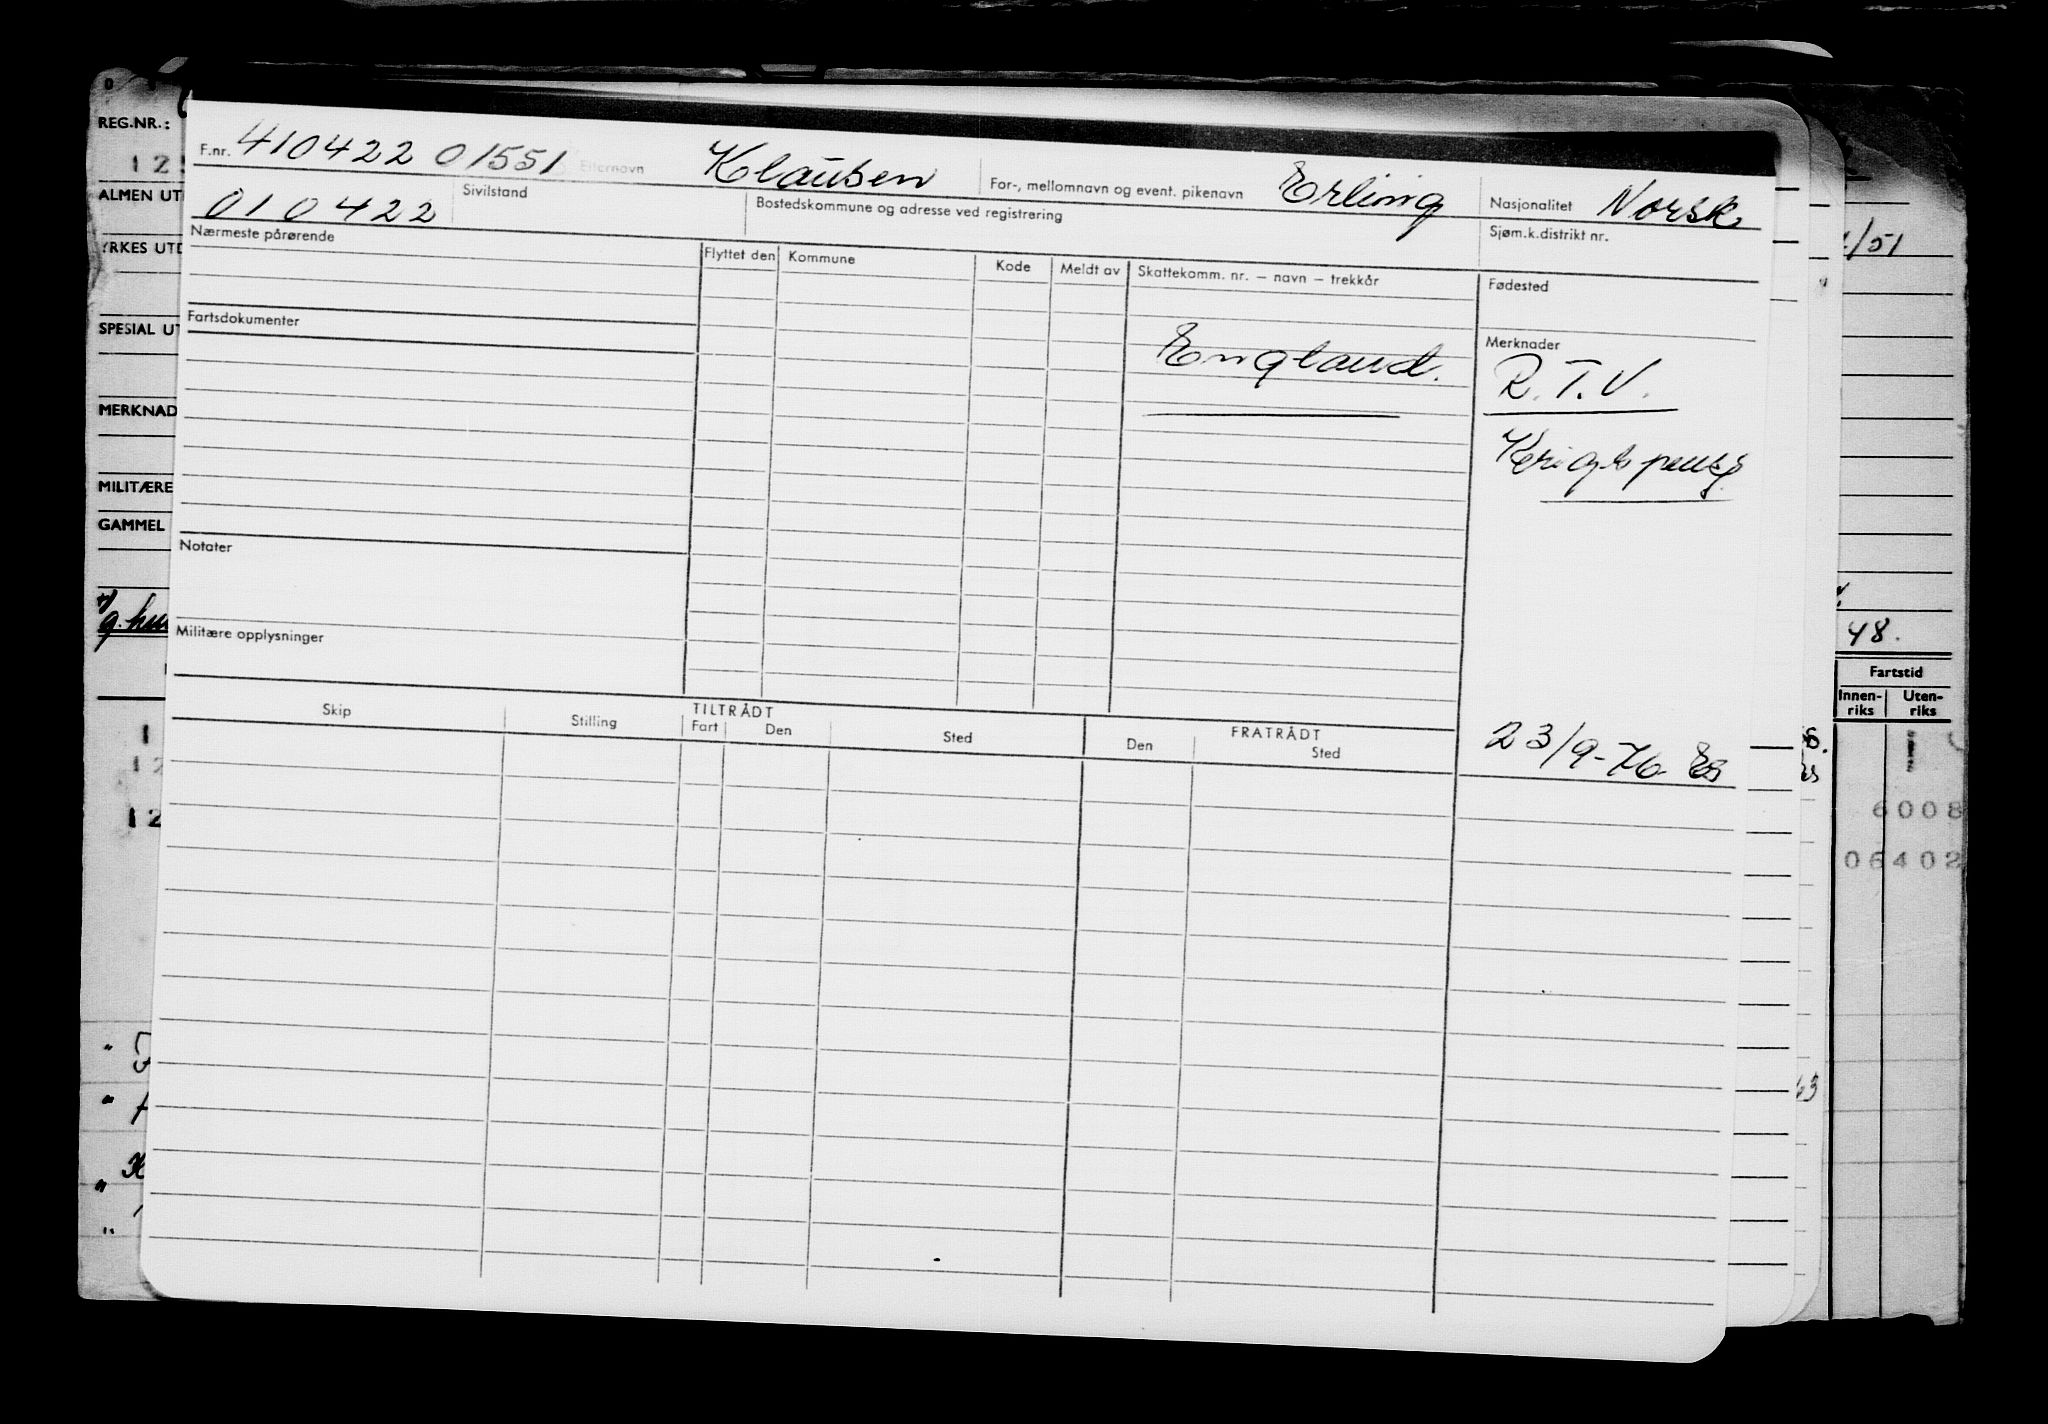 REG.NR.:
F.nr. 410422 01551 Etternavn Klausen For-, mellomnavn og event. pikenavn Erling Nasjonalitet Norsk
12
ALMEN UT
010422 Sivilstand Bostedskommune og adresse ved registrering Sjøm.k.distrikt nr.
YRKES UTD
/51
Nærmeste pårørende Flyttet den Kommune Kode Meldt av Skattekomm. nr. – navn – trekkår Fødested
Fartsdokumenter
SPESIAL UT
England. Merknader
R.T.V.
MERKNAD
Krigspensj.
MILITÆRE
GAMMEL
Notater
g.
48.
Militære opplysninger
Fartstid
Innen-riks Uten-riks
Skip Stilling TILTRÅDT Fart Den Sted FRATRÅDT Den Sted
23/9-76 Es
12
12
6008
06402
63